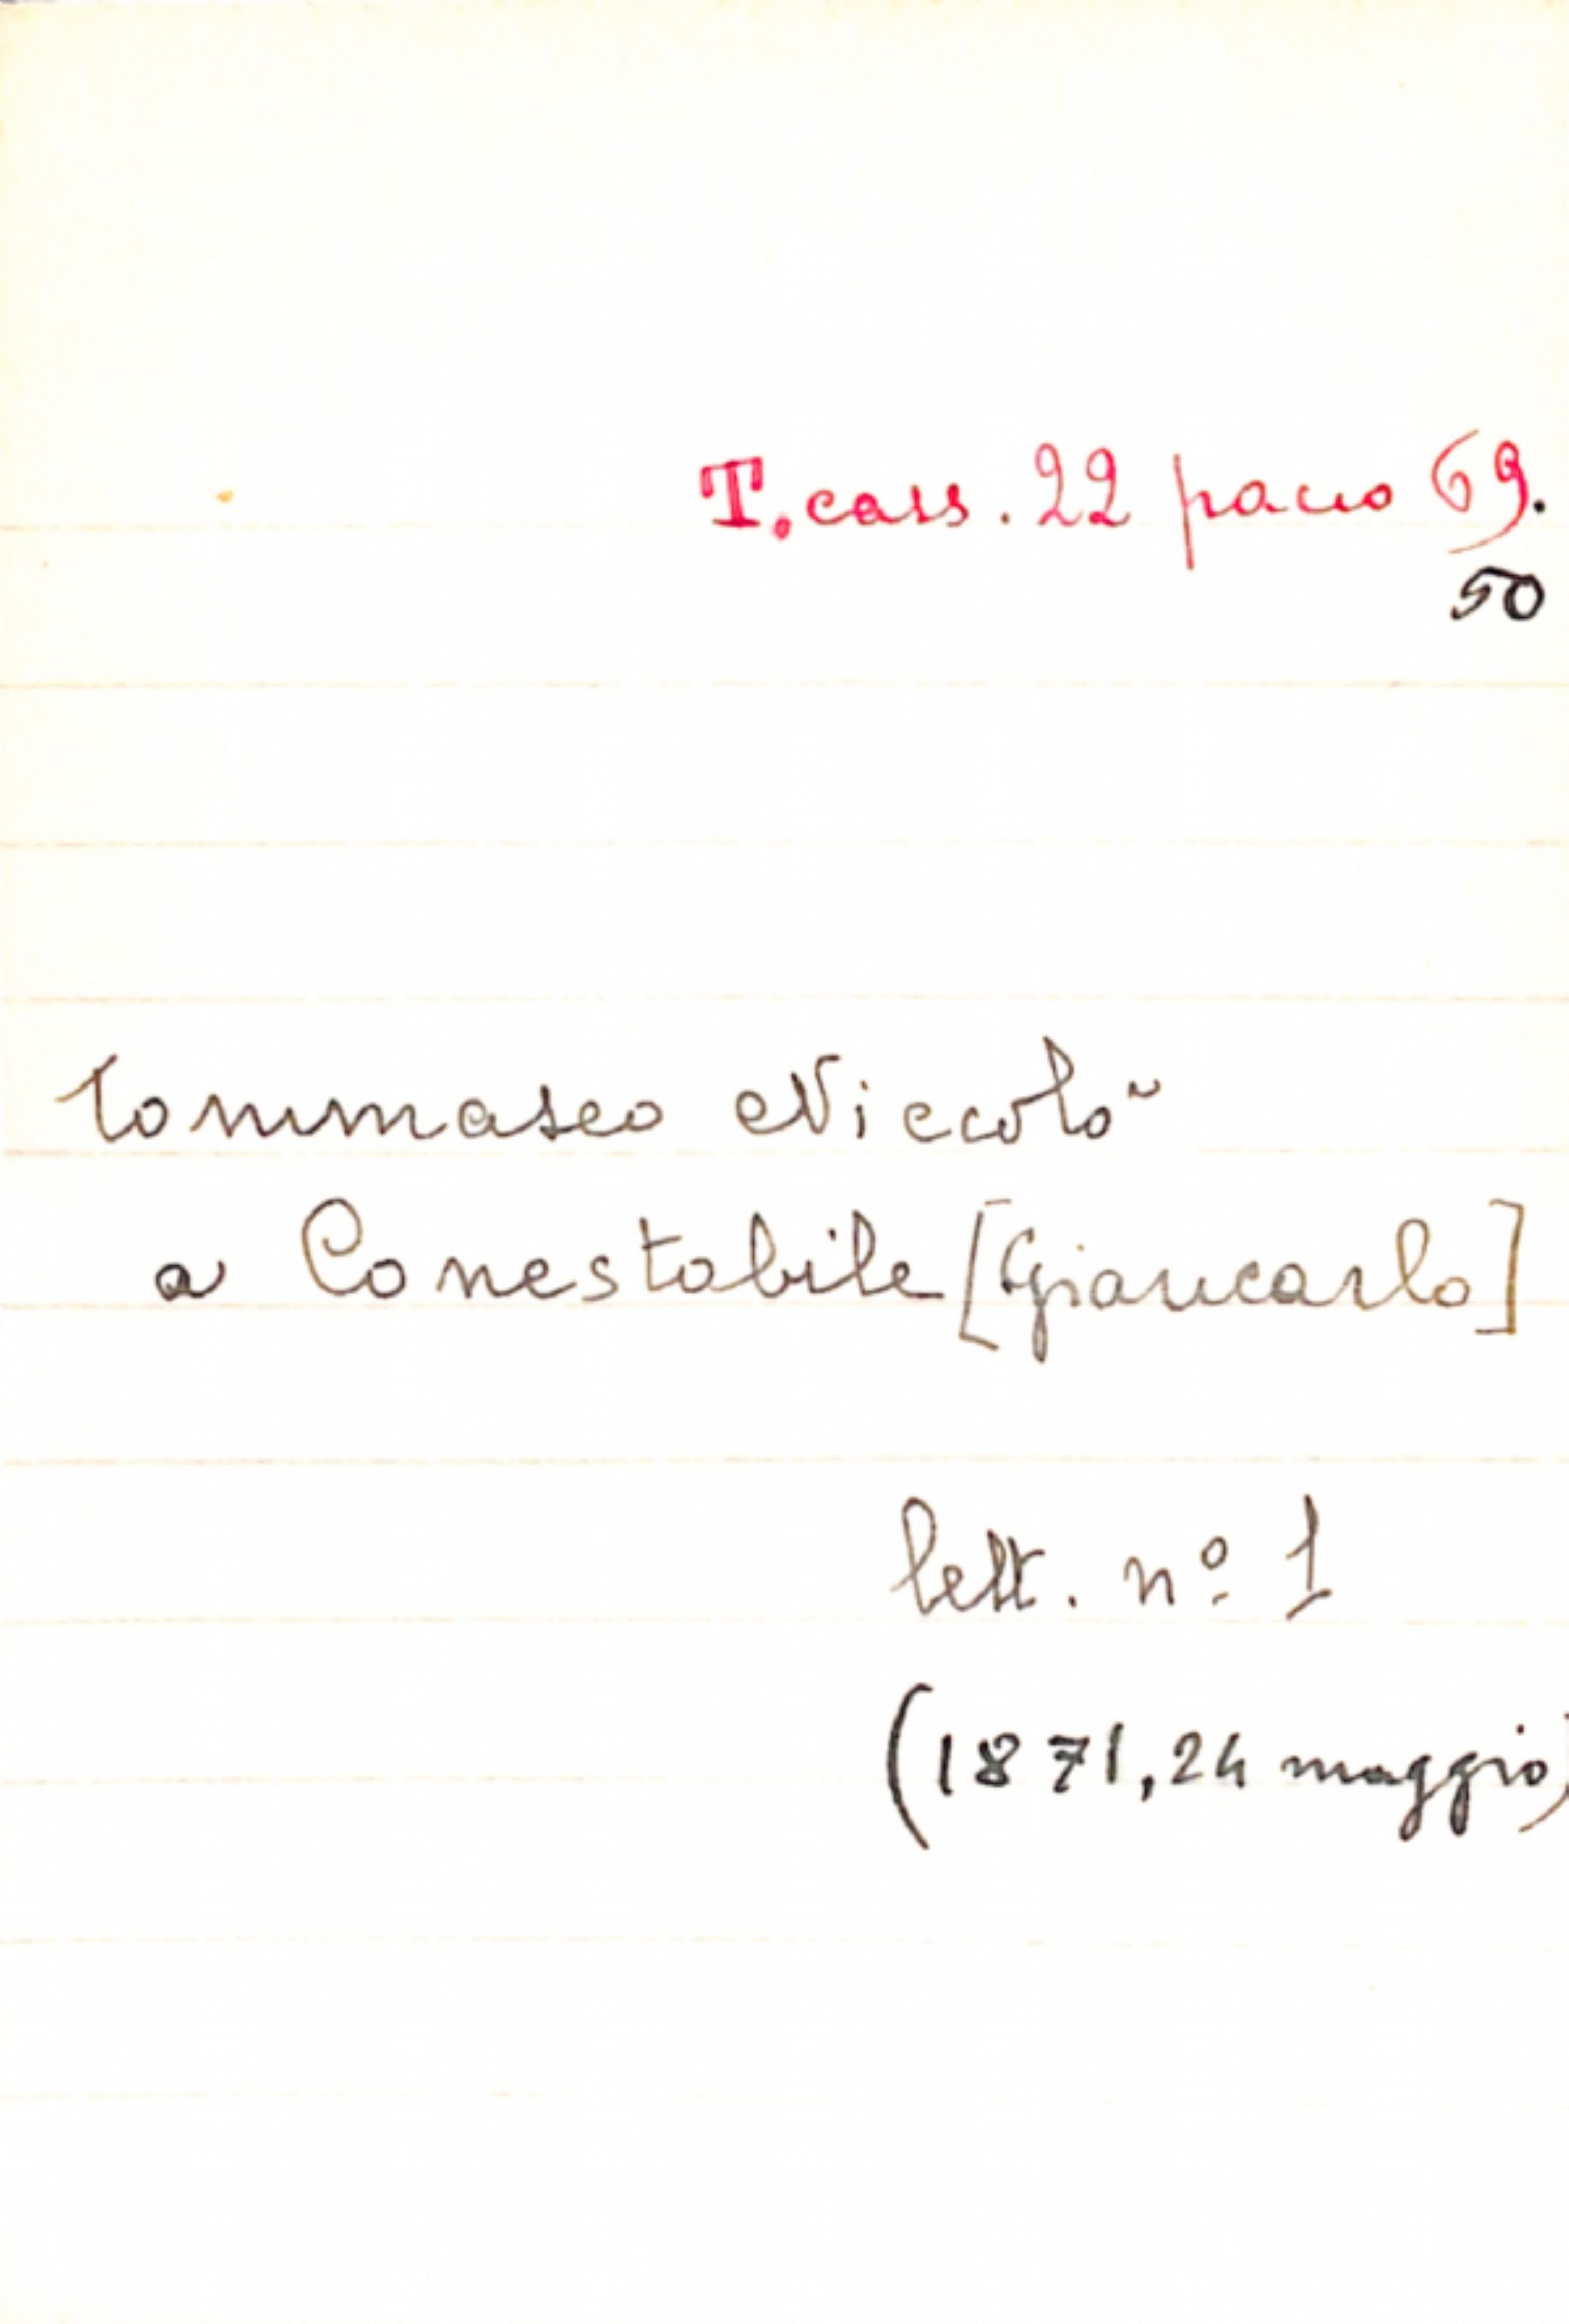 T. cass. 22 pacco 69.
50
Tommaseo Niccolò
a Conestabile [Giancarlo]
lett. nº 1
(1871, 24 maggio)